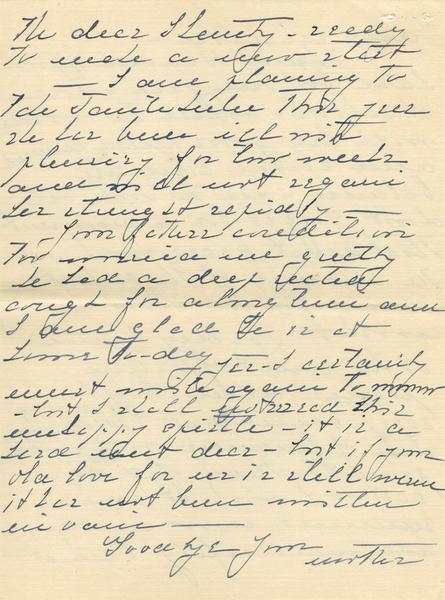 dear Henty - ready
to make a new start
— I am planning to
take Tante this year
she has been ill with
pleurisy for two weeks
and will not regain
her strength rapidly —
— Your father's condition
too worries me greatly
he had a deep seated
cough for a long time and
I am glad he is at
home to-day — Yes - I certainly
must write again to
- but I shall not reread this
unhappy epistle - it is a
hard dear - but if your
old love for us is still warm
it has not been written
in vain —
Goodbye Your
mother